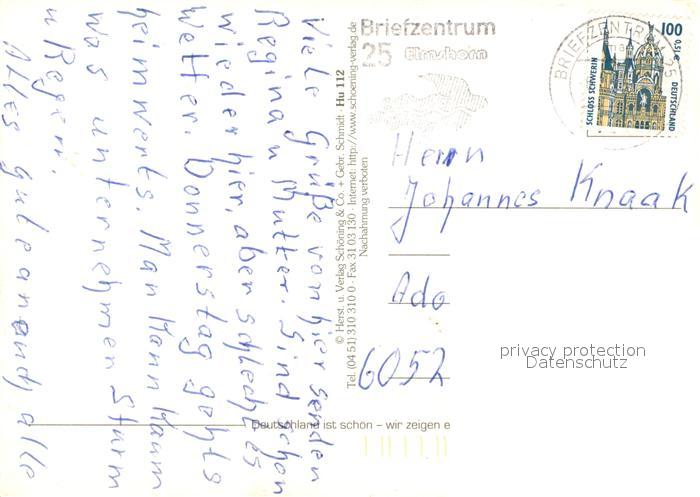 Viele Grüße von hier senden
Regina u Mutter. Sind schon
wieder hier, aber schlechtes
Wetter. Donnerstag gehts
heimwerts. Man kann kaum
was unternehmen Sturm
u Regen.
Alles gute an alle
© Herst. u. Verlag Schöning & Co. + Gebr. Schmidt · Hu 112
Tel. (04 51) 310 310 0 · Fax 31 03 130 · Internet: http://www.schoening-verlag.de
Nachahmung verboten
Briefzentrum
25 Elmshorn
BRIEFZENTRUM 25
100
0,51€
SCHLOSS SCHWERIN
DEUTSCHLAND
Herrn
Johannes Knaak
Ado
6052
privacy protection
Datenschutz
Deutschland ist schön – wir zeigen e